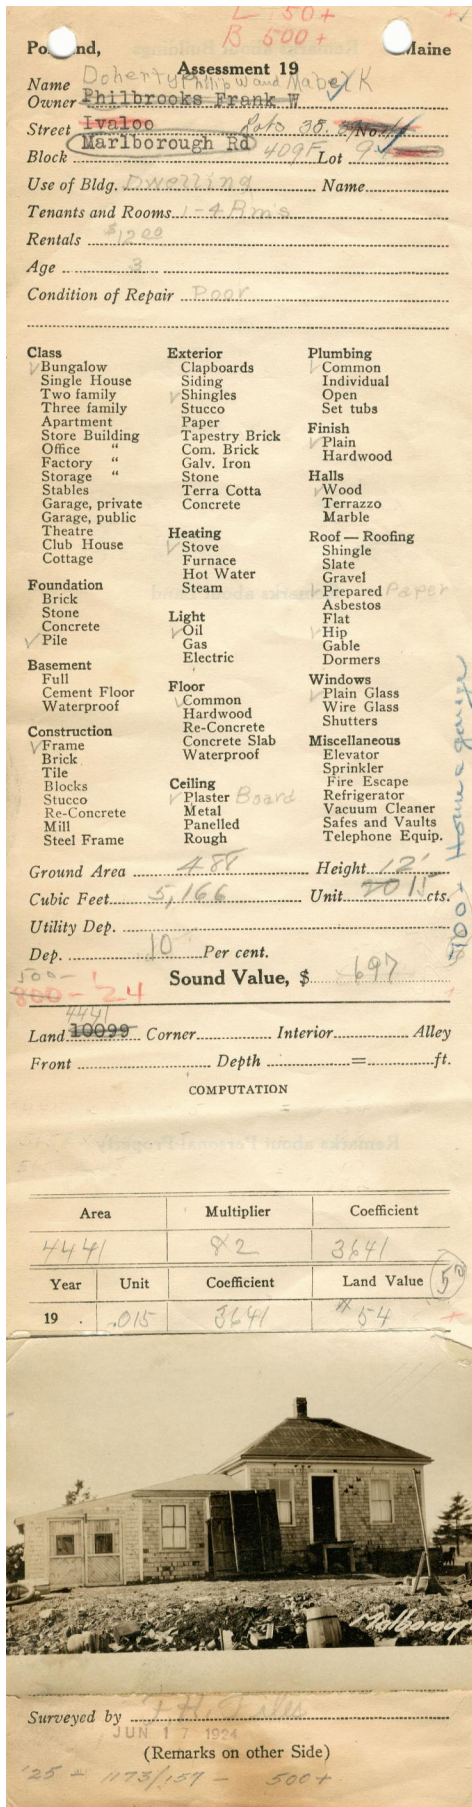 L 50+
B 500+
Portland, Maine
Assessment 19
Name Doherty Phillip W and Mabel K
Owner Philbrooks Frank W
Street Ivaloo Lots 38. 39 No.
Marlborough Rd
Block 409F Lot 9
Use of Bldg. Dwelling Name
Tenants and Rooms 1-4 Rm's
Rentals $12.00
Age 3
Condition of Repair Poor
Class
Bungalow
Single House
Two family
Three family
Apartment
Store Building
Office "
Factory "
Storage "
Stables
Garage, private
Garage, public
Theatre
Club House
Cottage
Foundation
Brick
Stone
Concrete
Pile
Basement
Full
Cement Floor
Waterproof
Construction
Frame
Brick
Tile
Blocks
Stucco
Re-Concrete
Mill
Steel Frame
Exterior
Clapboards
Siding
Shingles
Stucco
Paper
Tapestry Brick
Com. Brick
Galv. Iron
Stone
Terra Cotta
Concrete
Heating
Stove
Furnace
Hot Water
Steam
Light
Oil
Gas
Electric
Floor
Common
Hardwood
Re-Concrete
Concrete Slab
Waterproof
Ceiling
Plaster Board
Metal
Panelled
Rough
Plumbing
Common
Individual
Open
Set tubs
Finish
Plain
Hardwood
Halls
Wood
Terrazzo
Marble
Roof — Roofing
Shingle
Slate
Gravel
Prepared Paper
Asbestos
Flat
Hip
Gable
Dormers
Windows
Plain Glass
Wire Glass
Shutters
Miscellaneous
Elevator
Sprinkler
Fire Escape
Refrigerator
Vacuum Cleaner
Safes and Vaults
Telephone Equip.
House & garage
Ground Area 488 Height 12'
Cubic Feet 5,166 Unit 20 15 cts.
Utility Dep.
Dep. 10 Per cent.
500-
800 - '24
Sound Value, $ 697
4441
Land 10099 Corner Interior Alley
Front Depth = ft.
COMPUTATION
=
Area Multiplier Coefficient
4441 82 3641
Year Unit Coefficient Land Value 50
19 . .015 3641 54
Marlborough
Surveyed by
JUN 17 1924
(Remarks on other Side)
'25 - 1173/157 - 500+